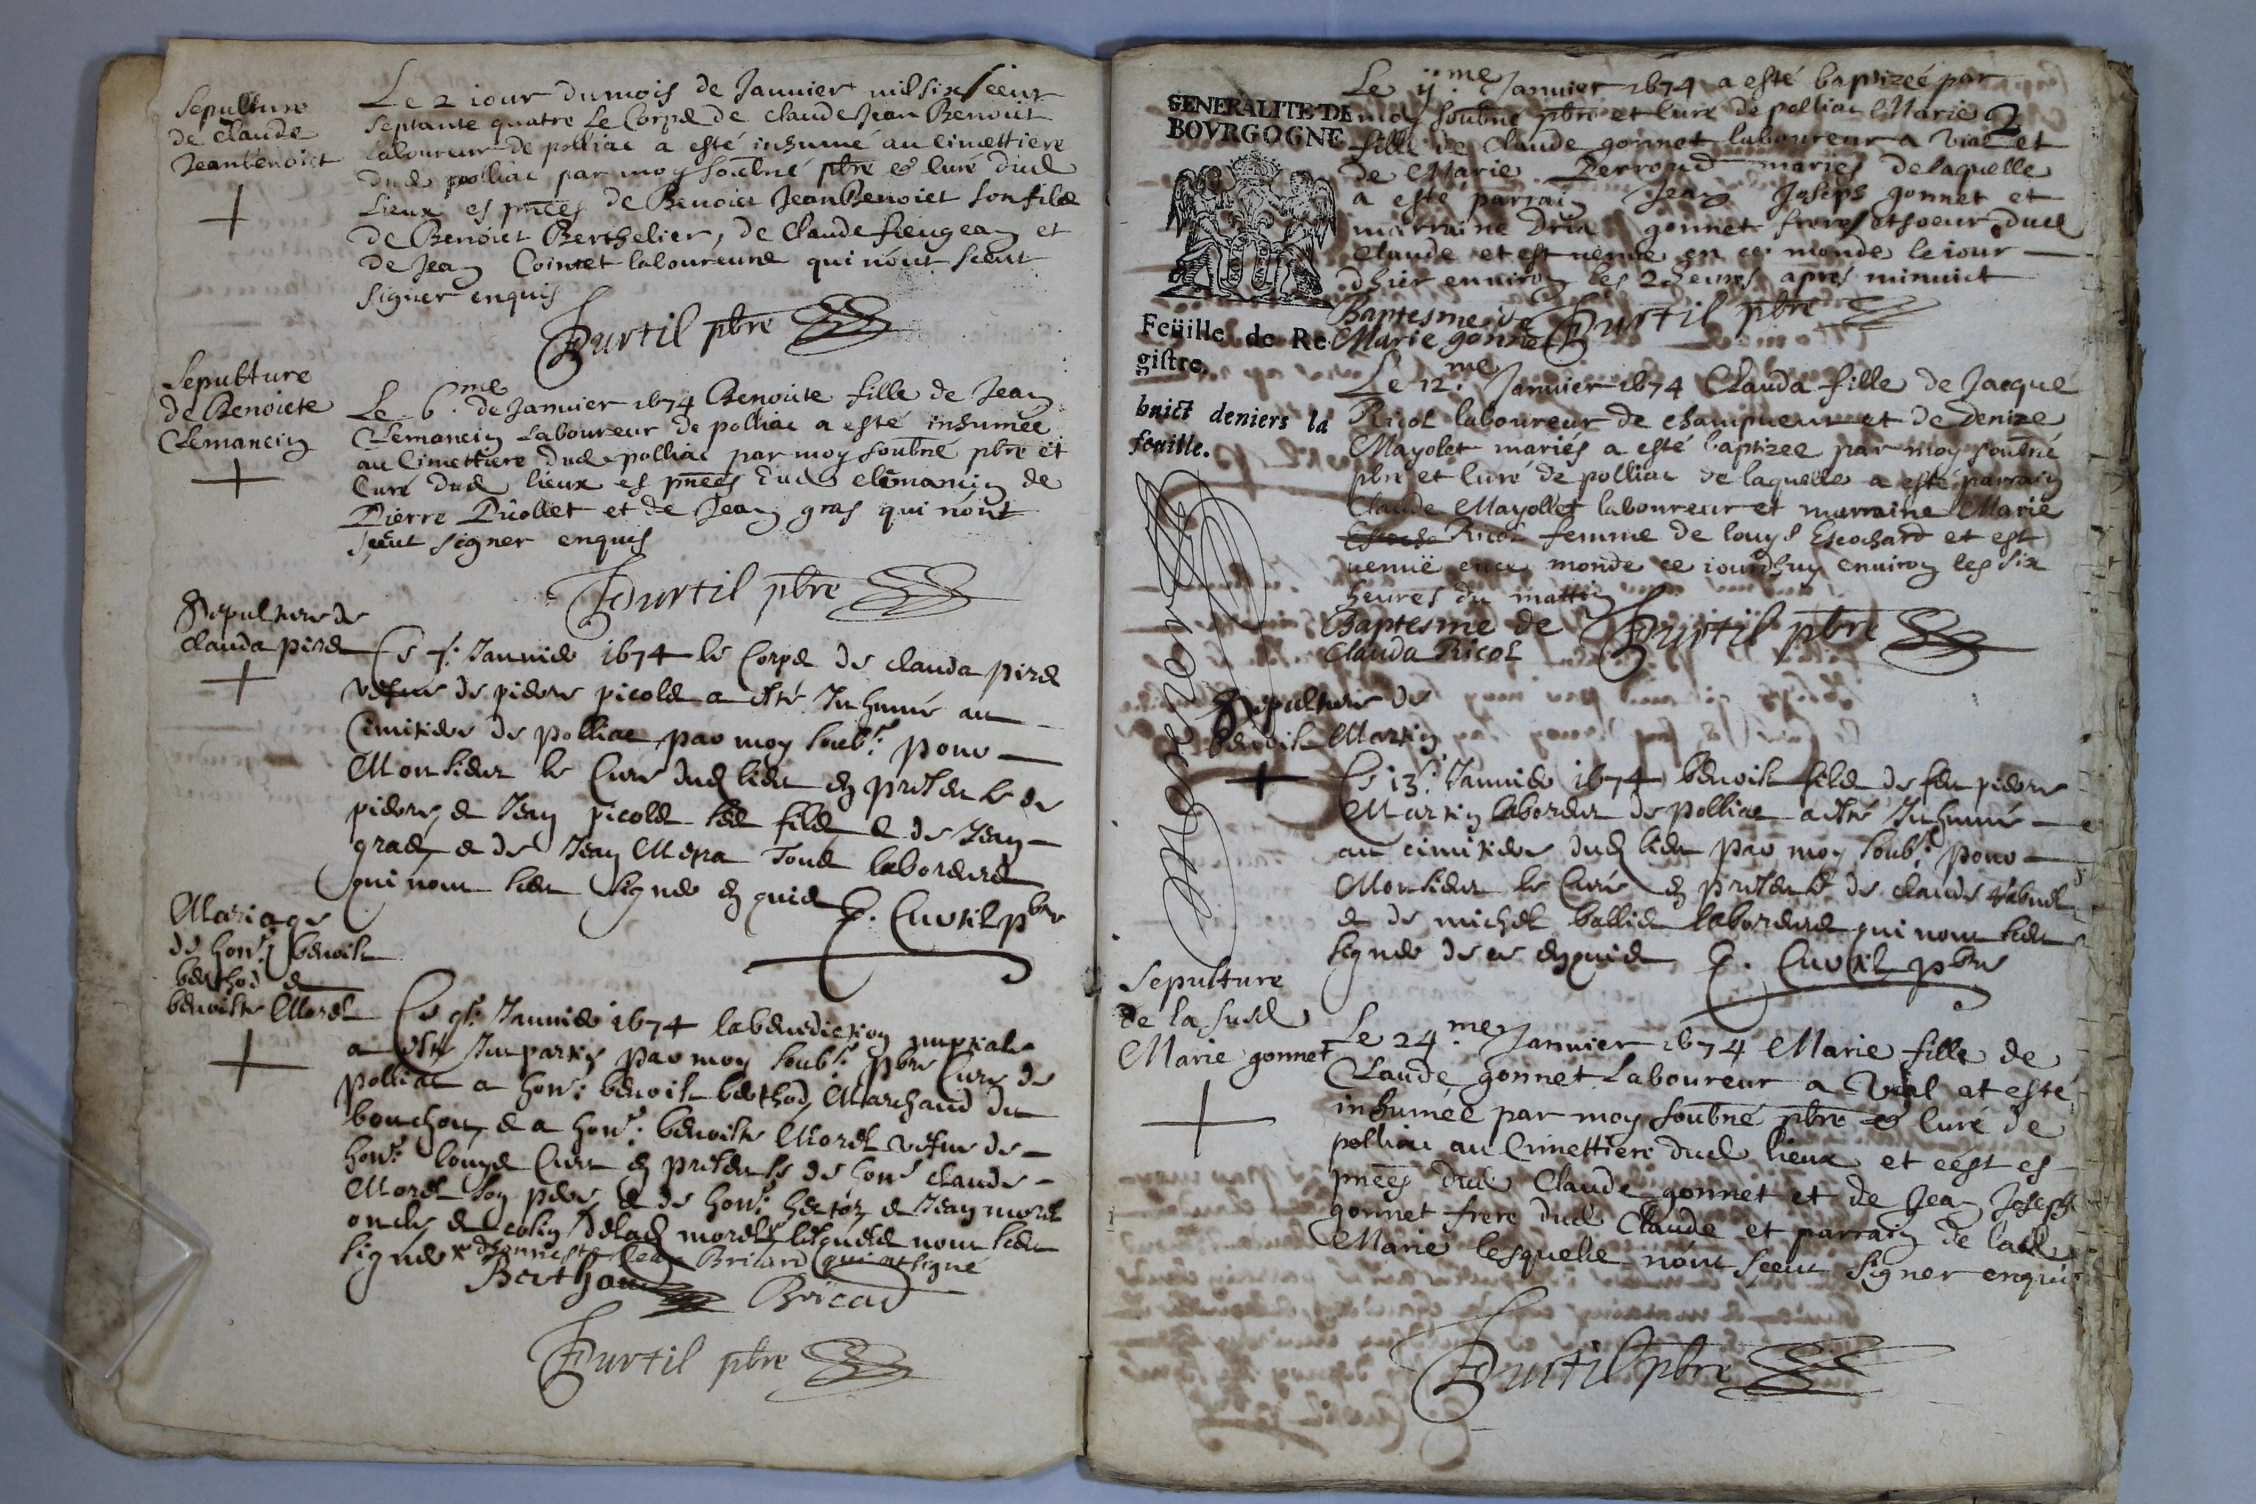 Sepulture
de Claude
Jeanbenoict
Le 2 iour du mois de Januier mil six seens
septante quatre Le Corps de Claude Jean Benoict
Laboureur de polliac a esté inhumé au Cimettiere
dud polliac par moy soubné pbre & Curé dud
Lieux es pnces de Benoict JeanBenoict son filz
de Benoict Berthelier, de Claude et
de Jean Cointet laboureurs qui nont sceut
signer enquis
Curtil pbre
Sepulture
de Benoicte
Clemancin
Le 6.me de Januier 1674 Benoicte fille de Jean
Clemancin Laboureur de polliac a esté inhumée
au Cimettiere dud polliac par moy soubné pbre et
Curé dud lieux es pnces dud clemancin de
Pierre Picollet et de Jean gras qui nont
sceut signer enquis
Curtil pbre
Sepulture de
Clauda
Le Januier 1674 le Corps de Clauda
vefue de pierre picolet a esté Inhumé au
Cimitiere de polliac par moy soub.é pour
Monsieur le Curé dud lieu en presence de
pierre, & Jean picolet ses filz & de Jean
gras, & de Jean Tous laboreurs
qui nont sceu signer enquis C. Curtil pbre
Mariage
de hon. benoist
berthod &
benoiste Morel
Le Januier 1674 la benediction nuptiale
a esté Impartie par moy soub.é pbre Curé de
polliac a hon. benoist berthod, Marchand du
bouchou, & a hon. benoiste Morel vefue de
hon. Louys en presence de hon. claude
Morel son pere & de hon. hector & Jean morel
oncle & cosin delad morel lesquels nont sceu
signer dhonneste Jean Bricard qui at signé
Berthaud Bricad
Curtil pbre
GENERALITE DE
BOVRGOGNE
Feüille de Re
gistre.
huict deniers la
feuille.
2
Le Januier 1674 a esté baptizeé par
moy soubné pbre et Curé de polliac Marie
fille de Claude gonnet laboureur a Vial et
de Marie Perroud mariés de laquelle
a esté parrain Jean Joseph gonnet et
marraine gonnet frere et soeur dud
Claude et est venue en ce monde le iour
dhier enuiron les 2 heures apres minuict
Baptesme de
Marie gonnet
Curtil pbre
Le 12.me Januier 1674 Clauda fille de Jacque
Ricol laboureur de et de Denize
Mayolet mariés a esté baptizee par moy soubné
pbre et Curé de polliac de laquelle a esté parrain
Claude Mayollet laboureur et marraine Marie
Ricol femme de Louys Escochard et est
venuë en ce monde ce iourdhuy enuiron les six
heures du mattin
Baptesme de
Clauda Ricol
Curtil pbre
Sepulture de
benoist Martin
Le 13. Januier 1674 benoist filz de feu pierre
Martin laboreur de polliac a esté Inhumé
au cimitiere dud lieu par moy soub.é pour
Monsieur le Curé en presence de claude
& de michel ballie laboreurs qui nont sceu
signer de ce enquis C. Curtil pbre
Sepulture
de la susd
Marie gonnet
Le 24.me Januier 1674 Marie fille de
Claude gonnet Laboureur a Vial at esté
inhumée par moy soubné pbre & Curé de
polliac au Cimettiere dud lieux et cest es
pnces dud Claude gonnet et de Jean Joseph
gonnet frere dud Claude et parrain de lad
Marie lesquelle nont sceut signer enquis
Curtil pbre